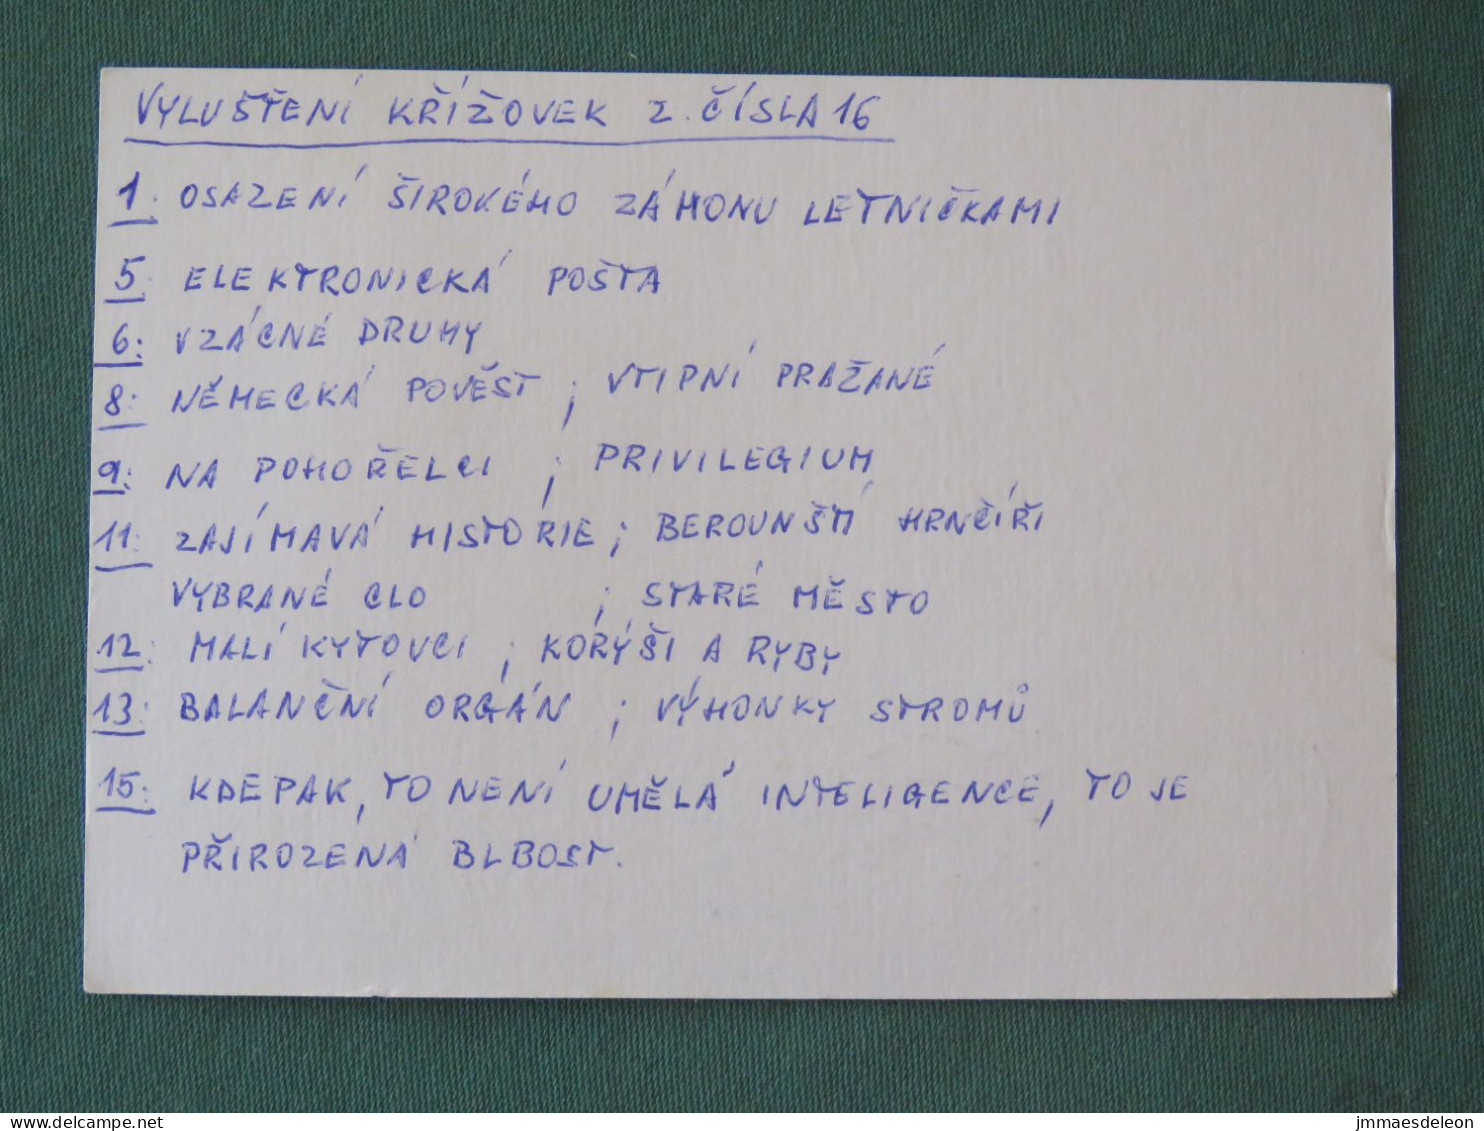 VYLUŠTĚNÍ KŘÍŽOVEK Z. ČÍSLA 16
1. OSAZENÍ ŠIROKÉHO ZÁHONU LETNIČKAMI
5. ELEKTRONICKÁ POŠTA
6: VZÁCNÉ DRUHY
8: NĚMECKÁ POVĚST ; VTIPNÍ PRAŽANÉ
9: NA POHOŘELCI ; PRIVILEGIUM
11: ZAJÍMAVÁ HISTORIE ; BEROUNŠTÍ HRNČÍŘI
VYBRANÉ CLO ; STARÉ MĚSTO
12: MALÍ KYTOVCI ; KORÝŠI A RYBY
13: BALANČNÍ ORGÁN ; VÝHONKY STROMŮ
15: KDEPAK, TO NENÍ UMĚLÁ INTELIGENCE, TO JE
PŘIROZENÁ BLBOST.
delcampe.net
jmmaesdeleon